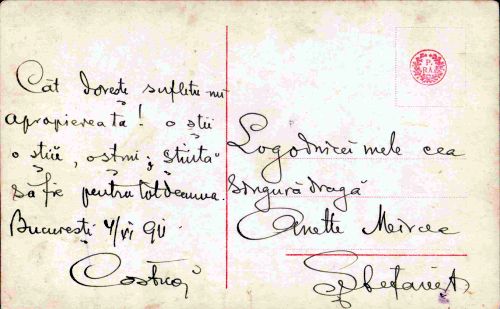 Cât dorește sufletu-mi
apropierea ta! o știi
o știu, ostmi; știuta
să fie pentru totdeauna.
București 4/VI 911
Costică
P.
R.A.
Logodnicei mele cea
singură dragă
Anette Mircea
Ștefănești